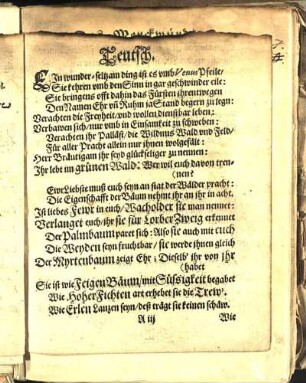 Teutsch.
EIn wunder-seltzam ding ist es umb Venus Pfeile/
Sie kehren umb den Sinn in gar geschwinder eile:
Sie bringens offt dahin das Fürsten ihrentwegen
Den Namen Ehr uñ Ruhm ja Stand begern zu legn:
Verachten die Freyheit/und wollen dienstbar leben;
Verhawen sich/nur umb in Einsamkeit zu schweben:
Verachten ihr Palläst/die Wildnus Wald und Feld/
Für aller Pracht allein nur ihnen wolgefält:
Herr Bräutigam ihr seyd glückseliger zu nennen:
Ihr lebt im grünen Wald: Wer wil euch davon tren-
(nen?
Ewr Liebste muß euch seyn an stat der Wälder pracht:
Die Eigenschafft der Bäum nehmt ihr an ihr in acht.
Ist liebes Fewr in euch/Wacholder sie man nennet:
Verlanget euch/ihr sie für Lorber Zweig erkennet
Der Palmbaum paret sich: Also sie auch mit euch
Die Weyden seyn fruchtbar/sie werde ihnen gleich
Der Myrtenbaum zeige Ehr: Dieselb' ihr von ihr
(habet
Sie ist wie Feigen Bäum/mit Süssigkeit begabet
Wie Hoher Fichten art erhebet sie die Trew.
Wie Erlen Lantzen seyn/deß trägt sie keinen schäw.
A iij
Wie